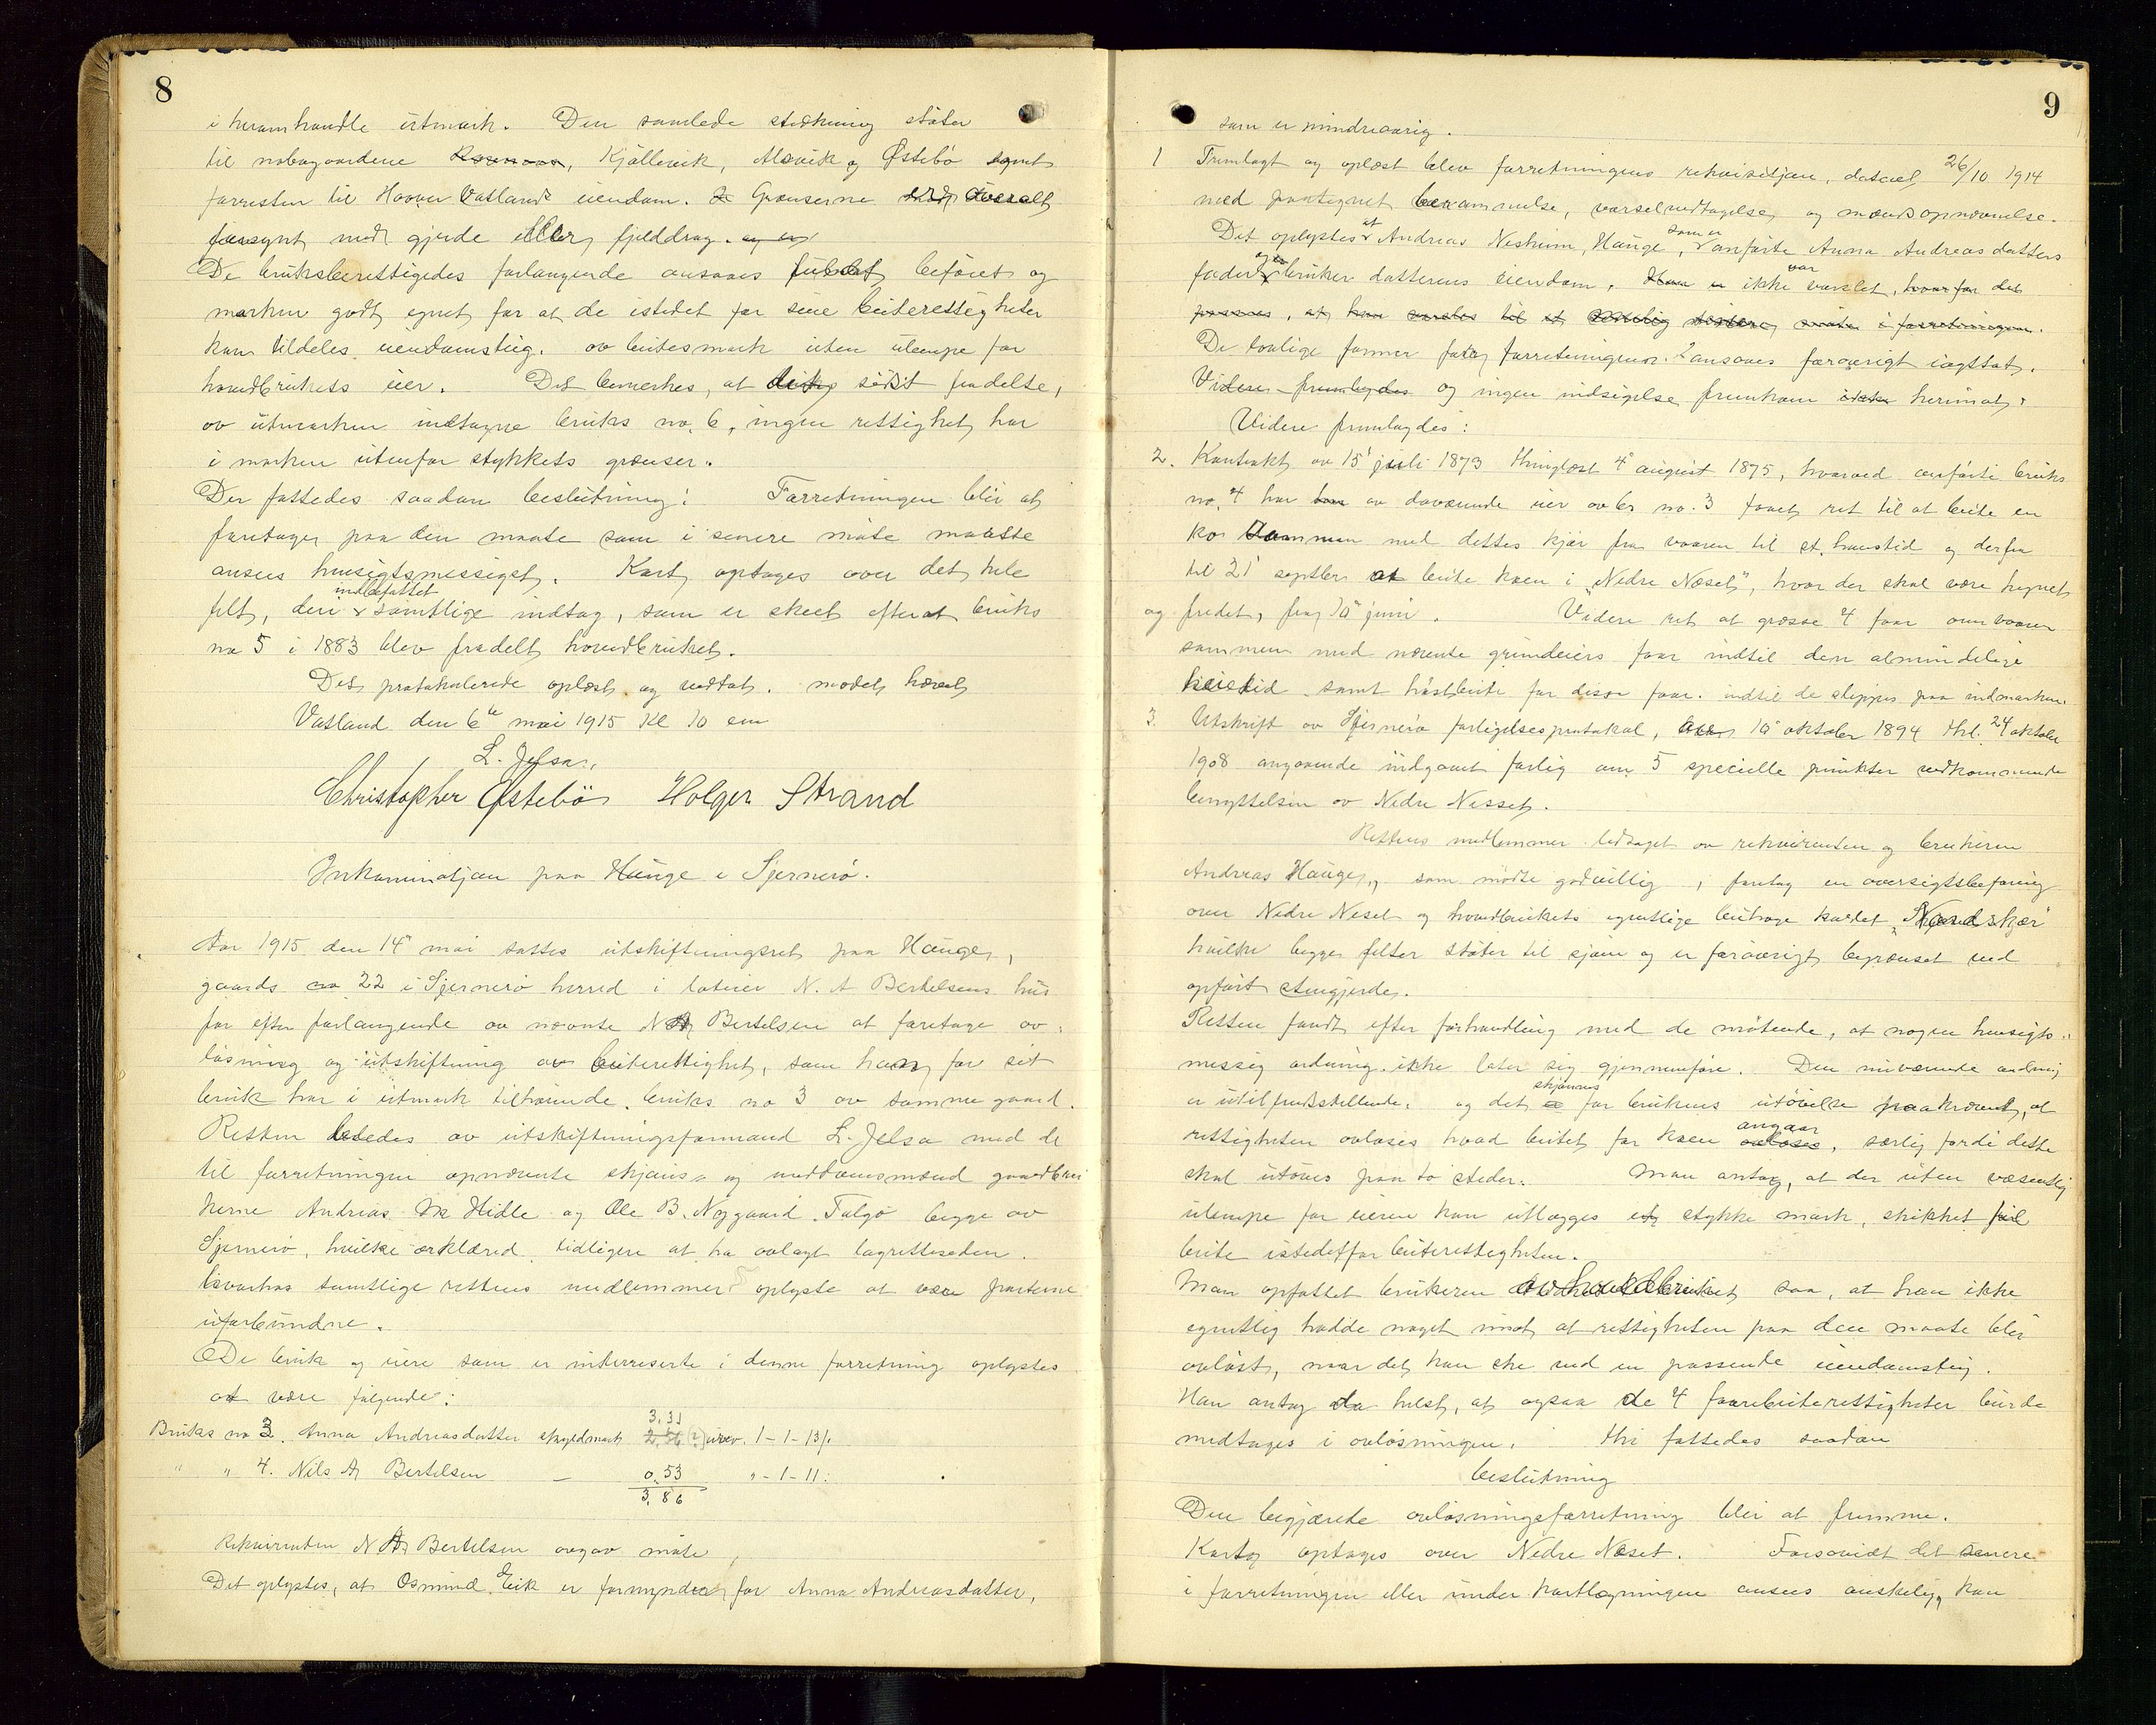 8
i heromhandle utmark. Den samlede strækning støter
til nabogaardene Kjøllevik, Alsvik og Østebø samt
forresten til Haavar Vatlands eiendom. Grænserne overalt
forsynt med gjerde eller fjelddrag. og er
De bruksberettigedes forlangende ansaaes fuldt beføiet og
marken godt egnet for at de istedet for sine beiterettigheter
kan tildeles eiendomsteig. av beitesmark uten ulempe for
hovedbrukets eier. Det bemerkes, at sidst fradelte,
av utmarken indtagne bruks no. 6, ingen rettighet har
i marken utenfor stykkets grænser.
Der fattedes saadan beslutning: Forretningen blir at
foretages paa den maate som i senere møte maatte
ansees hensigtsmessigst. Kart optages over det hele
indbefattet
felt, deri samtlige indtag, som er skeet efterat bruks
no 5 i 1883 blev fradelt hovedbruket.
Det protokolerede oplæst og vedtat. mødet hævet
Vatland den 6te mai 1915 Kl 10 em
L. Jelsa.
Christopher Østebø Holger Strand
Inkaminatjon paa Hauge i Sjernerø.
Aar 1915 den 14de mai sattes utskiftningsret paa Hauge,
gaards no 22 i Sjernerø herred i lokaier N. A Bertelsens hus
for efter forlangende av nævnte N A Bertelsen at foretage av-
løsning og utskiftning av beiterettighet, som han for sit
bruk har i utmark tilhørende bruks no 3 av samme gaard.
Retten lededes av utskiftningsformand L. Jelsa med de
til forretningen opnævnte skjøns- og meddomsmænd gaardbru
kerne Andreas M. Hidle og Ole B. Nygaard Talgø begge av
Sjernerø, hvilke erklæred tidligere at ha avlagt lagretteseden.
hvorhos samtlige rettens medlemmer oplyste at være parterne
uforbundne.
De bruk og eiere som er interreserte i denne forretning oplystes
at være følgende:
3,31
Bruks no 3. Anna Andreasdatter skyldmark urev. 1-1-13/.
" " 4. Nils A Bertelsen — 0,53 " - 1 - 11.
3,86
Rekvirenten N A Bertelsen avgav møte
Det oplystes, at Osmund Eik er formynder for Anna Andreasdatter,
9
som er mindreaarig.
1 Fremlagt og oplæst blev forretningens rekvisitjon, datert 26/10 1914
med paategnet berammelse, varselvedtagelse og mændsopnævnelse.
at som er
Det oplystes Andreas Nesheim, Hauge, anførte Anna Andreasdatters
og var
fader bruker datterens eiendom. Han er ikke varslet, hvorfor det
De lovlige former for forretningen ansaaes forøvrigt iagttat.
Videre fremlagdes og ingen indsigelse fremkom herimot.
Videre fremlagdes:
2. Kontrakt av 15' juli 1873 thinglæst 4' august 1875, hvorved anførte bruks
no. 4 har av daværende eier av br no. 3 faaet ret til at beite en
ko sammen med dettes kjør fra vaaren til st. hanstid og derfra
til 21' septbr at beite koen i "Nedre Neset", hvor der skal være hegnet
og fredet, fra 10' juni. Videre ret at græsse 4 faar om vaaren
sammen med nævnte grundeiers faar indtil den almindelige
heietid samt høstbeite for disse faar. indtil de slippes paa indmarken.
3. Utskrift av Sjernerø forligelsesprotokol, 10' oktober 1894 thl. 24 oktober
1908 angaaende indgaaet forlig om 5 specielle punkter vedkommende
benyttelsen av Nedre Nesset.
Rettens medlemmer ledsaget av rekvirenten og brukeren
Andreas Hauge, som møtte godvillig, foretog en oversigtsbefaring
over Nedre Neset og hovedbrukets egentlige beitehage kaldet "Nordskor"
hvilke begge felter støter til sjøen og er forøvrigt begrænset ved
opført stengjerde.
Retten fandt efter forhandling med de møtende, at nogen hensigts-
messig ordning ikke later sig gjennemføre. Den nuværende ordning
skjønnes
er utilfredsstillende, og det for brukens utøvelse paakrævet, at
angaar
rettigheten avløses hvad beitet for koen avløses, særlig fordi dette
skal utøves paa to steder. Man antog, at der uten væsentlig
ulempe for eieren kan utlægges et stykke mark, skikket til
beite istedetfor beiterettigheten.
Man opfattet brukeren av hovedbruket saa, at han ikke
egentlig hadde noget imot, at rettigheten paa den maate blir
avløst, naar det kan ske ved en passende eiendomsteig.
Han antog da helst, at ogsaa de 4 faarebeiterettigheter burde
medtages i avløsningen. Thi fattedes saadan
beslutning
Den begjærede avløsningsforretning blir at fremme.
Kart optages over Nedre Neset. Forsaavidt det senere
i forretningen eller under kartlægningen ansees ønskelig, kan